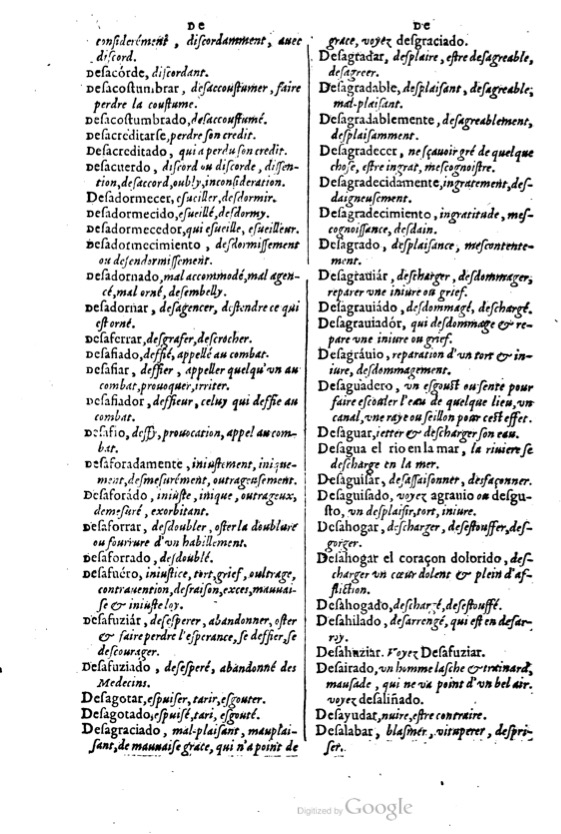 DE
considerément, discordamment, auec
discord.
Desacórde, discordant.
Desacostumbrar, desaccoustumer, faire
perdre la coustume.
Desacostumbrado, desaccoustumé.
Desacreditarse, perdre son credit.
Desacreditado, qui a perdu son credit.
Desacuerdo, discord ou discorde, dissen-
tion, desaccord, oubly, inconsideration.
Desadormecer, esueiller, desdormir.
Desadormecido, esueillé, desdormy.
Desadormecedor, qui esueille, esueilleur.
Desadormecimiento, desdormissement
ou desendormissement.
Desadornado, mal accommodé, mal agen-
cé, mal orné, desembelly.
Desadornar, desagencer, destendre ce qui
est orné.
Desaferrar, desgrafer, descrocher.
Desafiado, deffié, appellé au combat.
Desafiar, deffier, appeller quelqu'vn au
combat, prouoquer, irriter.
Desafiador, deffieur, celuy qui deffie au
combat.
Desafio, deffy, prouocation, appel au com-
bat.
Desaforadamente, iniustement, inique-
ment, desmesurément, outrageusement.
Desaforádo, iniuste, inique, outrageux,
demesuré, exorbitant.
Desaforrar, desdoubler, oster la doublure
ou fourrure d'vn habillement.
Desaforrado, desdoublé.
Desafuéro, iniustice, tort, grief, oultrage,
contrauention, desraison, exces, mauuai-
se & iniuste loy.
Desafuziár, desesperer, abandonner, oster
& faire perdre l'esperance, se deffier, se
descourager.
Desafuziado, desesperé, abandonné des
Medecins.
Desagotar, espuiser, tarir, esgouter.
Desagotado, espuisé, tari, esgouté.
Desagraciado, mal-plaisant, mauplai-
sant, de mauuaise grace, qui n'a point de
DE
grace, voyez desgraciado.
Desagradar, desplaire, estre desagreable,
desagreer.
Desagradable, desplaisant, desagreable,
mal-plaisant.
Desagradablemente, desagreablement,
desplaisamment.
Desagradecer, ne sçauoir gré de quelque
chose, estre ingrat, mescognoistre.
Desagradecidamente, ingratement, des-
daigneusement.
Desagradecimiento, ingratitude, mes-
cognoissance, desdain.
Desagrado, desplaisance, mescontente-
ment.
Desagrauiár, descharger, desdommager,
reparer vne iniure ou grief.
Desagrauiádo, desdommagé, deschargé.
Desagrauiadór, qui desdommage & re-
pare vne iniure ou grief.
Desagráuio, reparation d'vn tort & in-
iure, desdommagement.
Desaguadero, vn esgoust ou sente pour
faire escouler l'eau de quelque lieu, vn
canal, vne raye ou seillon pour cest effet.
Desaguar, ietter & descharger son eau.
Desagua el rio en la mar, la riuiere se
descharge en la mer.
Desaguisar, desassaisonner, desfaçonner.
Desaguisado, voyez agrauio ou desgu-
sto, vn desplaisir, tort, iniure.
Desahogar, descharger, desestouffer, des-
gorger.
Desahogar el coraçon dolorido, des-
charger vn cœur dolent & plein d'af-
fliction.
Desahogado, deschargé, desestouffé.
Desahilado, desarrengé, qui est en desar-
roy.
Desahuziar. Voyez Desafuziar.
Desairado, vn homme lasche & trainard,
mausade, qui ne va point d'vn bel air.
voyez desaliñado.
Desayudar, nuire, estre contraire.
Desalabar, blasmer, vituperer, despri-
ser.
Digitized by Google